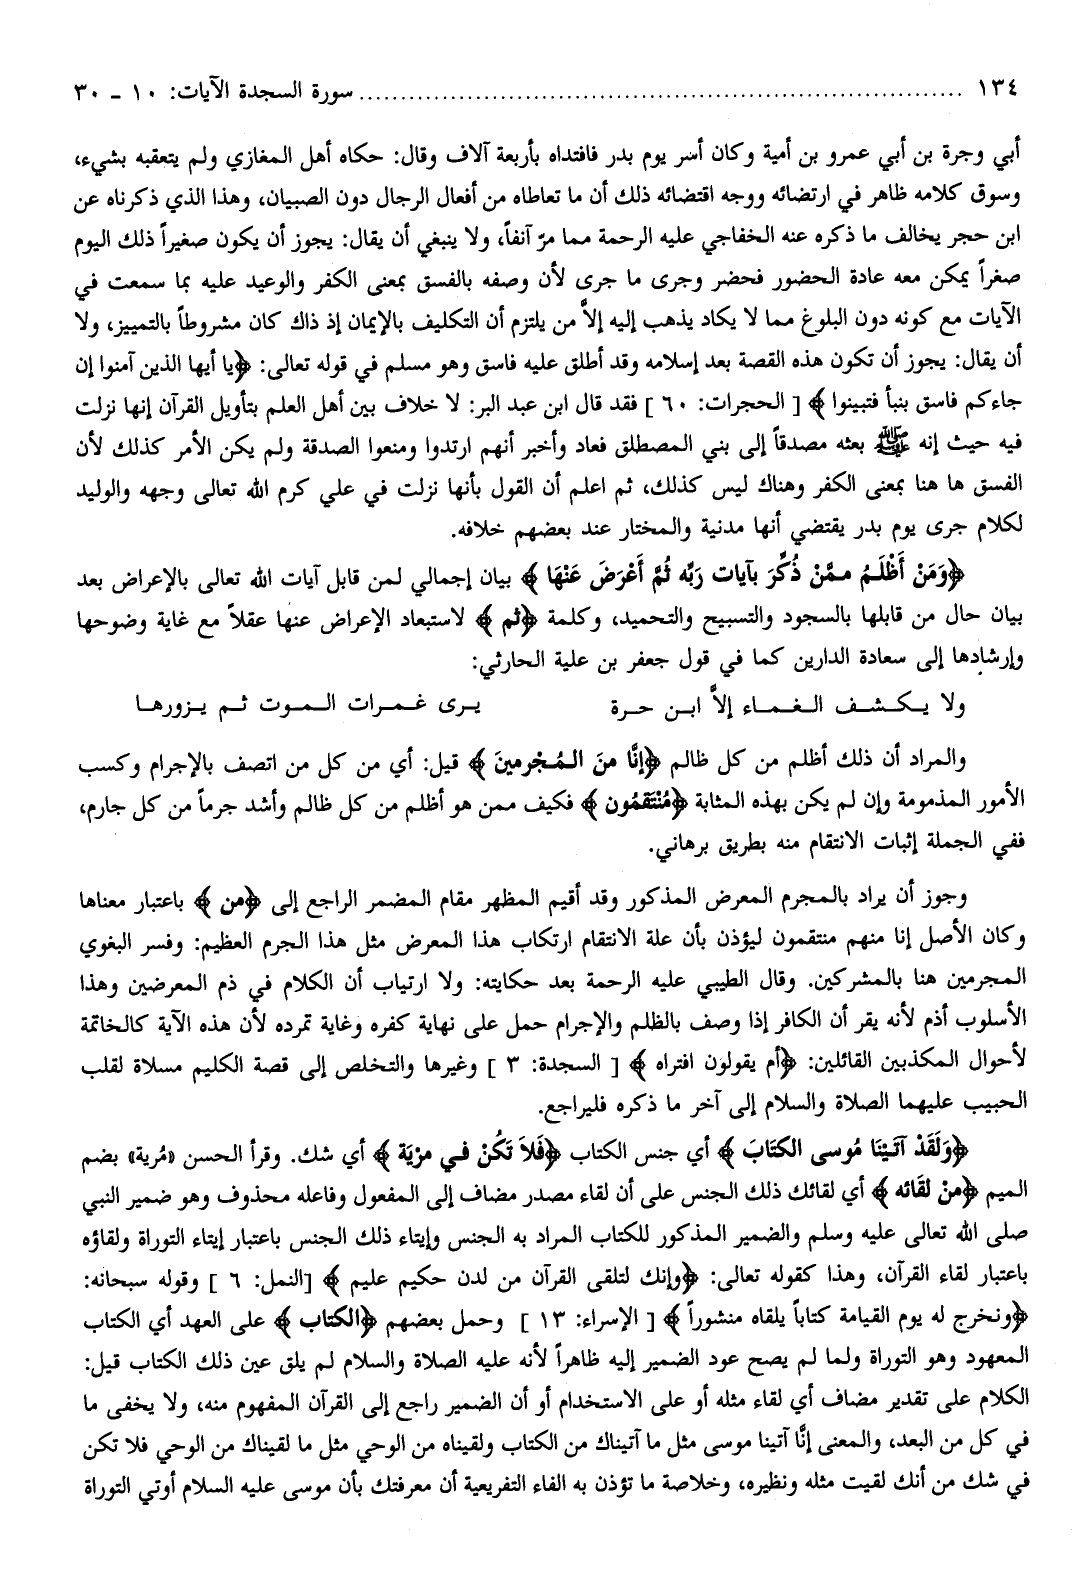 ١٣٤ ........................................................................ سورة السجدة الآيات: ١٠ - ٣٠
أبي وجرة بن أبي عمرو بن أمية وكان أسر يوم بدر فافتداه بأربعة آلاف وقال: حكاه أهل المغازي ولم يتعقبه بشيء،
وسوق كلامه ظاهر في ارتضائه ووجه اقتضائه ذلك أن ما تعاطاه من أفعال الرجال دون الصبيان، وهذا الذي ذكرناه عن
ابن حجر يخالف ما ذكره عنه الخفاجي عليه الرحمة مما مرّ آنفاً، ولا ينبغي أن يقال: يجوز أن يكون صغيراً ذلك اليوم
صغراً يمكن معه عادة الحضور فحضر وجرى ما جرى لأن وصفه بالفسق بمعنى الكفر والوعيد عليه بما سمعت في
الآيات مع كونه دون البلوغ مما لا يكاد يذهب إليه إلاَّ من يلتزم أن التكليف بالإيمان إذ ذاك كان مشروطاً بالتمييز، ولا
أن يقال: يجوز أن تكون هذه القصة بعد إسلامه وقد أطلق عليه فاسق وهو مسلم في قوله تعالى: ﴿يا أيها الذين آمنوا إن
جاءكم فاسق بنبأ فتبينوا﴾ [ الحجرات: ٦٠ ] فقد قال ابن عبد البر: لا خلاف بين أهل العلم بتأويل القرآن إنها نزلت
فيه حيث إنه ﷺ بعثه مصدقاً إلى بني المصطلق فعاد وأخبر أنهم ارتدوا ومنعوا الصدقة ولم يكن الأمر كذلك لأن
الفسق ها هنا بمعنى الكفر وهناك ليس كذلك، ثم اعلم أن القول بأنها نزلت في علي كرم الله تعالى وجهه والوليد
لكلام جرى يوم بدر يقتضي أنها مدنية والمختار عند بعضهم خلافه.
﴿وَمَنْ أَظْلَمُ ممَّنْ ذُكِّرَ بآيات رَبِّه ثُمَّ أَعْرَضَ عَنْهَا﴾ بيان إجمالي لمن قابل آيات الله تعالى بالإعراض بعد
بيان حال من قابلها بالسجود والتسبيح والتحميد، وكلمة ﴿ثم﴾ لاستبعاد الإعراض عنها عقلاً مع غاية وضوحها
وإرشادها إلى سعادة الدارين كما في قول جعفر بن علية الحارثي:
ولا يـكـشـف الـغـمـاء إلاَّ ابـن حـرة يـرى غـمـرات الـمـوت ثـم يـزورهـا
والمراد أن ذلك أظلم من كل ظالم ﴿إنَّا منَ المُجْرمينَ﴾ قيل: أي من كل من اتصف بالإجرام وكسب
الأمور المذمومة وإن لم يكن بهذه المثابة ﴿مُنْتَقمُون﴾ فكيف ممن هو أظلم من كل ظالم وأشد جرماً من كل جارم،
ففي الجملة إثبات الانتقام منه بطريق برهاني.
وجوز أن يراد بالمجرم المعرض المذكور وقد أقيم المظهر مقام المضمر الراجع إلى ﴿من﴾ باعتبار معناها
وكان الأصل إنا منهم منتقمون ليؤذن بأن علة الانتقام ارتكاب هذا المعرض مثل هذا الجرم العظيم: وفسر البغوي
المجرمين هنا بالمشركين. وقال الطيبي عليه الرحمة بعد حكايته: ولا ارتياب أن الكلام في ذم المعرضين وهذا
الأسلوب أذم لأنه يقر أن الكافر إذا وصف بالظلم والإجرام حمل على نهاية كفره وغاية تمرده لأن هذه الآية كالخاتمة
لأحوال المكذبين القائلين: ﴿أم يقولون افتراه﴾ [ السجدة: ٣ ] وغيرها والتخلص إلى قصة الكليم مسلاة لقلب
الحبيب عليهما الصلاة والسلام إلى آخر ما ذكره فليراجع.
﴿وَلَقَدْ آتَيْنَا مُوسى الكتَابَ﴾ أي جنس الكتاب ﴿فَلاَ تَكُنْ في مرْيَة﴾ أي شك. وقرأ الحسن «مُرية» بضم
الميم ﴿منْ لقَائه﴾ أي لقائك ذلك الجنس على أن لقاء مصدر مضاف إلى المفعول وفاعله محذوف وهو ضمير النبي
صلى الله تعالى عليه وسلم والضمير المذكور للكتاب المراد به الجنس وإيتاء ذلك الجنس باعتبار إيتاء التوراة ولقاؤه
باعتبار لقاء القرآن، وهذا كقوله تعالى: ﴿وإنك لتلقى القرآن من لدن حكيم عليم﴾ [النمل: ٦ ] وقوله سبحانه:
﴿ونخرج له يوم القيامة كتاباً يلقاه منشوراً﴾ [ الإسراء: ١٣ ] وحمل بعضهم ﴿الكتاب﴾ على العهد أي الكتاب
المعهود وهو التوراة ولما لم يصح عود الضمير إليه ظاهراً لأنه عليه الصلاة والسلام لم يلق عين ذلك الكتاب قيل:
الكلام على تقدير مضاف أي لقاء مثله أو على الاستخدام أو أن الضمير راجع إلى القرآن المفهوم منه، ولا يخفى ما
في كل من البعد، والمعنى إنَّا آتينا موسى مثل ما آتيناك من الكتاب ولقيناه من الوحي مثل ما لقيناك من الوحي فلا تكن
في شك من أنك لقيت مثله ونظيره، وخلاصة ما تؤذن به الفاء التفريعية أن معرفتك بأن موسى عليه السلام أوتي التوراة